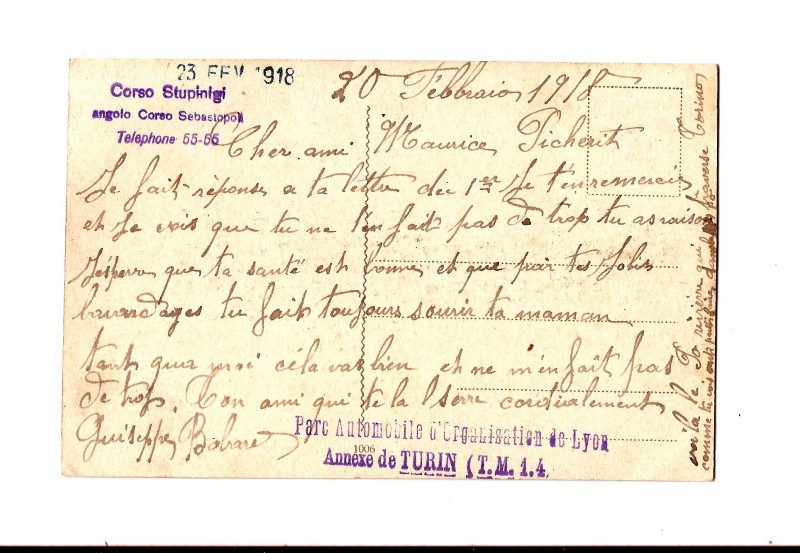 23 FEV 1918
Corso Stupinigi
angolo Corso Sebastopoli
Telephone 55-55
20 Febbraio 1918
Cher ami Maurice Picherit
Je fait réponse a ta lettre du 1er Je t'en remercie
et Je vois que tu ne t'en fait pas de trop tu as raison
J'esperre que ta santé est bonne et que par tes Jolis
bavardages tu fait toujours sourir ta maman
tant qua moi céla vas bien et ne m'en fait pas
de trop. Ton ami qui te la serre cordialement
Guiseppe
Parc Automobile d'Organisation de Lyon
1006
Annexe de TURIN (T.M. 1.4
voila le Po rivierre qui traverse Torino
comme tu vois on peut faire